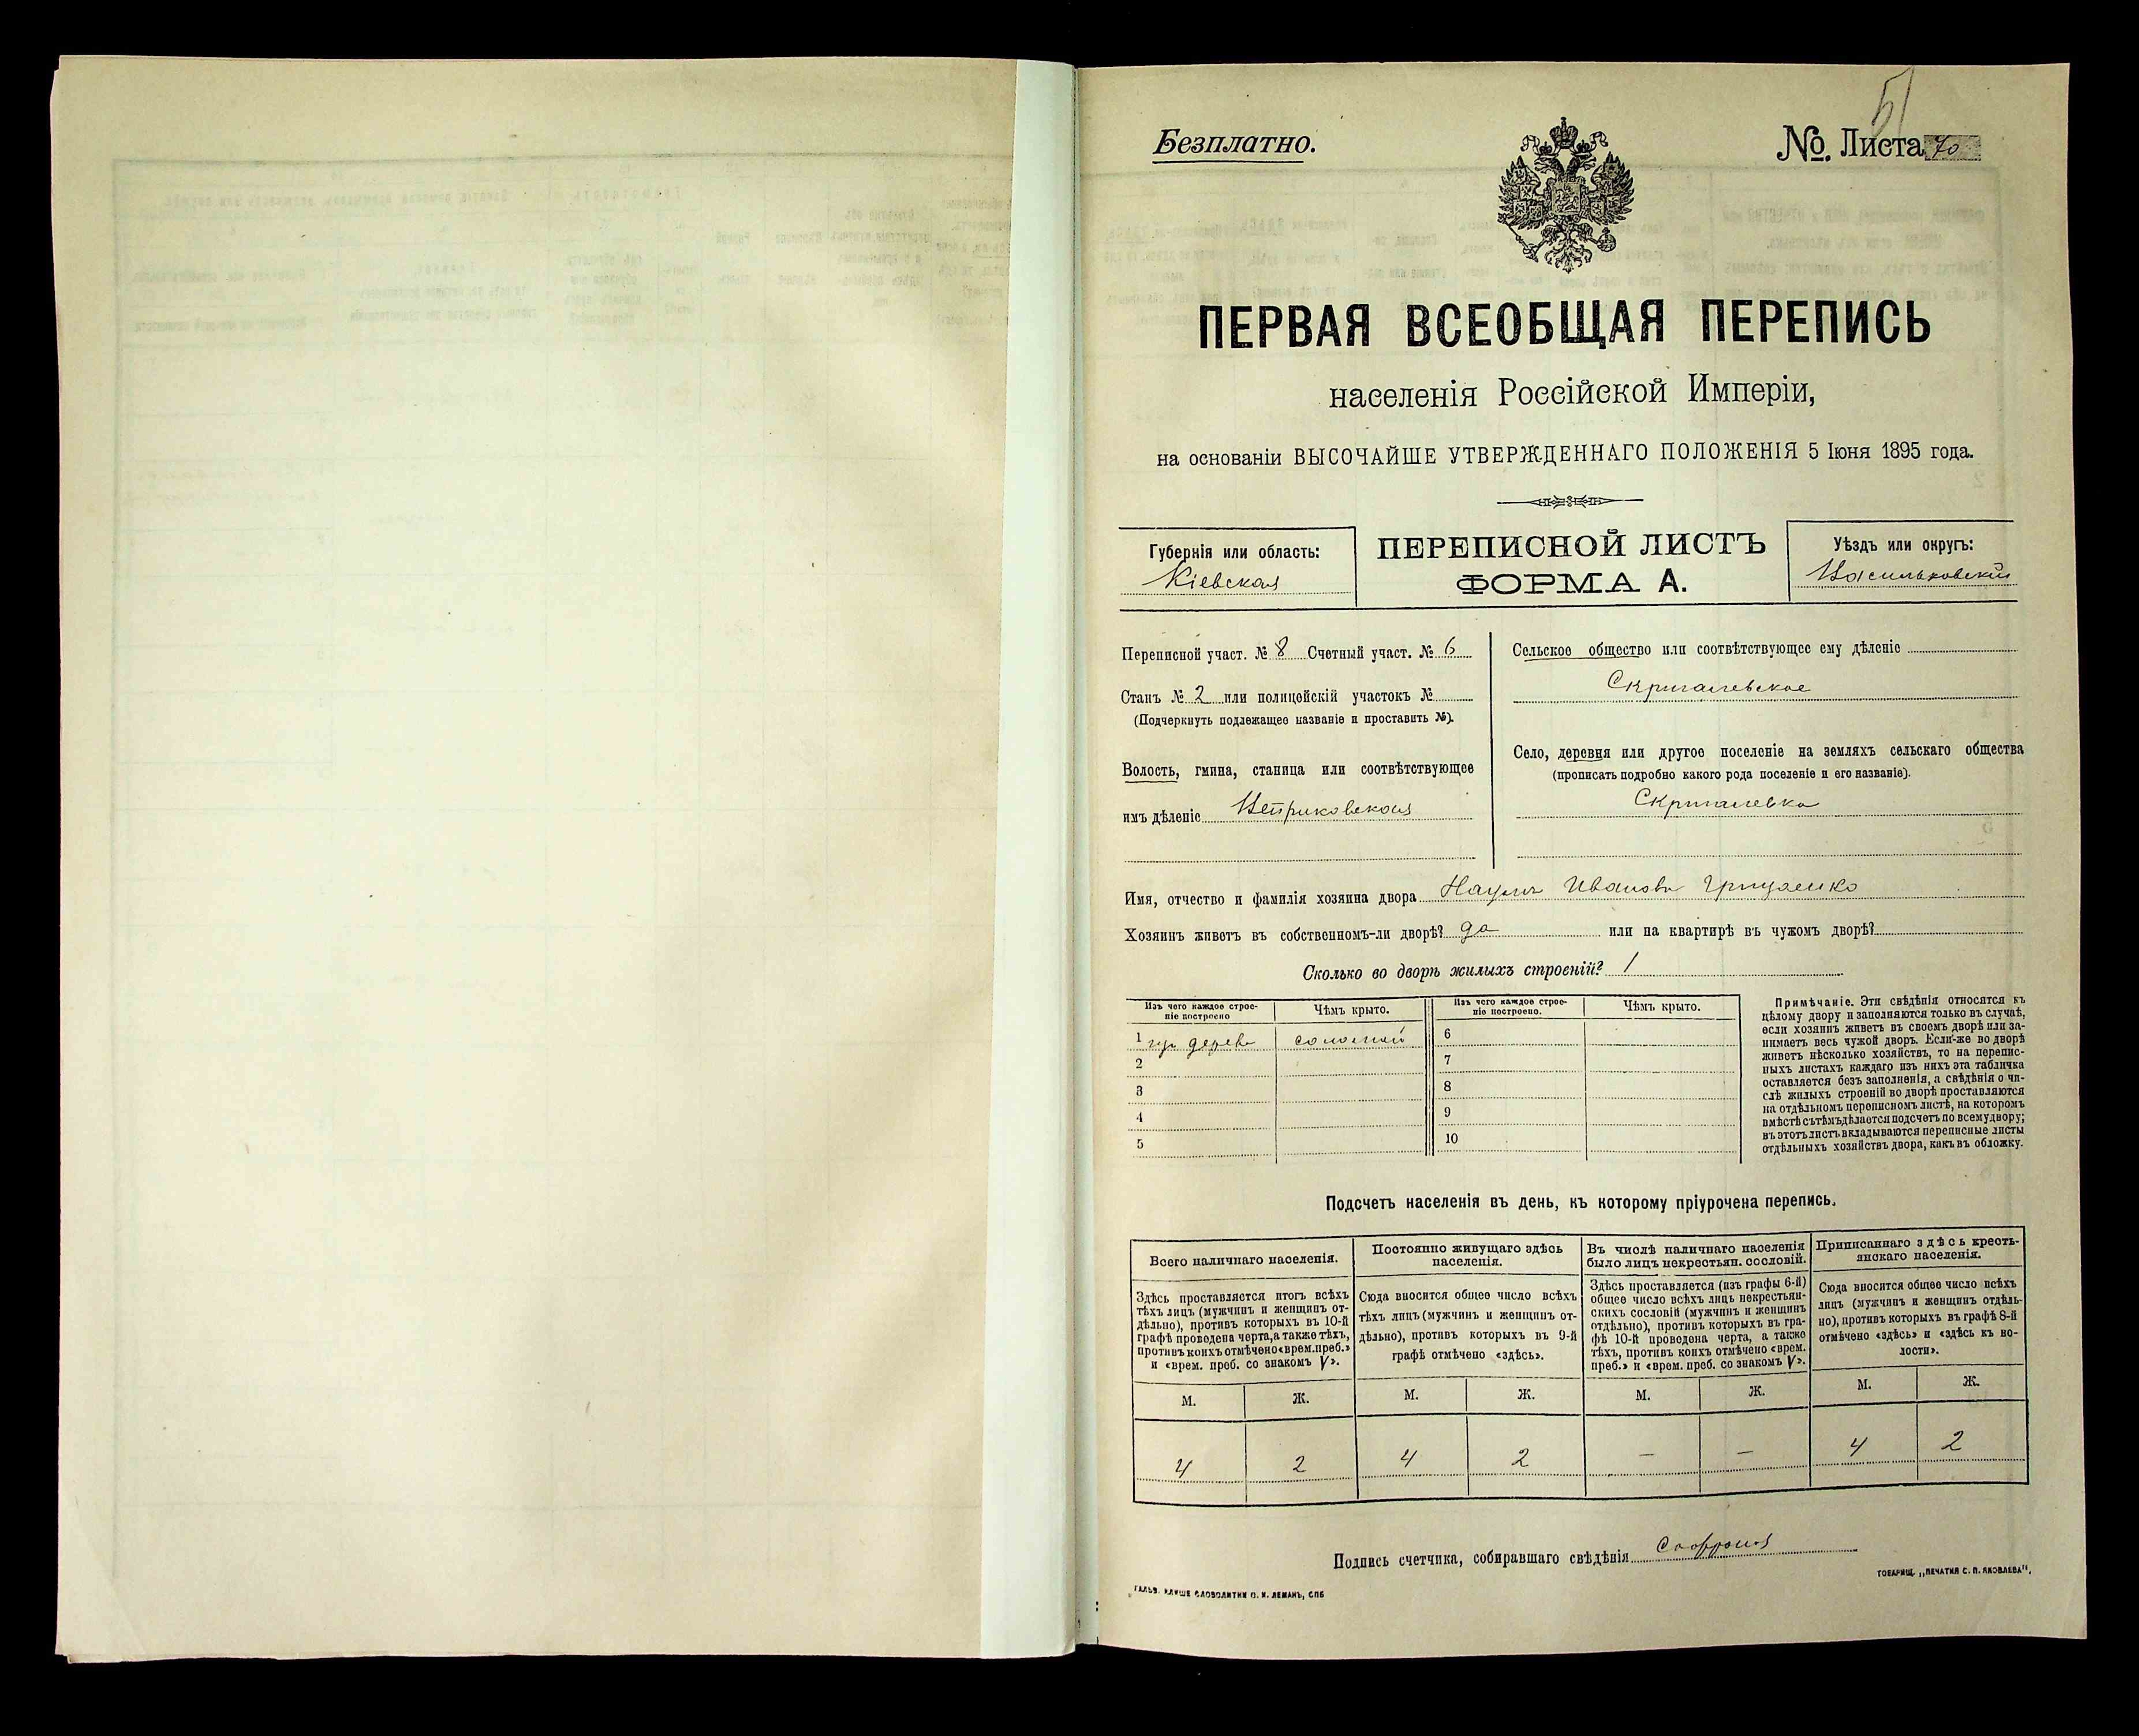 51
Безплатно.
№. Листа 70
ПЕРВАЯ ВСЕОБЩАЯ ПЕРЕПИСЬ
населенія Россійской Имперіи,
на основаніи ВЫСОЧАЙШЕ УТВЕРЖДЕННАГО ПОЛОЖЕНІЯ 5 Іюня 1895 года.
Губернія или область:
Кіевская
ПЕРЕПИСНОЙ ЛИСТЪ
ФОРМА А.
Уѣздъ или округъ:
Васильковскій
Переписной участ. № 8 Счетный участ. № 6
Станъ № 2 или полицейскій участокъ №
(Подчеркнуть подлежащее названіе и проставить №).
Волость, гмина, станица или соотвѣтствующее
имъ дѣленіе
Сельское общество или соотвѣтствующее ему дѣленіе
Скригалевское
Село, деревня или другое поселеніе на земляхъ сельскаго общества
(прописать подробно какого рода поселеніе и его названіе).
Скригалевка
Имя, отчество и фамилія хозяина двора Наумъ Ивановъ Грищенко
Хозяинъ живетъ въ собственномъ-ли дворѣ? да или на квартирѣ въ чужомъ дворѣ?
Сколько во дворѣ жилыхъ строеній? 1
Изъ чего каждое строе-
ніе построено
Чѣмъ крыто.
1 изъ дерева соломой
2
3
4
5
Изъ чего каждое строе-
ніе построено.
Чѣмъ крыто.
6
7
8
9
10
Примѣчаніе. Эти свѣдѣнія относятся къ
цѣлому двору и заполняются только въ случаѣ,
если хозяинъ живетъ въ своемъ дворѣ или за-
нимаетъ весь чужой дворъ. Если-же во дворѣ
живетъ нѣсколько хозяйствъ, то на перепис-
ныхъ листахъ каждаго изъ нихъ эта табличка
оставляется безъ заполненія, а свѣдѣнія о чи-
слѣ жилыхъ строеній во дворѣ проставляются
на отдѣльномъ переписномъ листѣ, на которомъ
вмѣстѣ съ тѣмъ дѣлается подсчетъ по всему двору;
въ этотъ листъ вкладываются переписные листы
отдѣльныхъ хозяйствъ двора, какъ въ обложку.
Подсчетъ населенія въ день, къ которому пріурочена перепись.
Всего наличнаго населенія.
Здѣсь проставляется итогъ всѣхъ
тѣхъ лицъ (мужчинъ и женщинъ от-
дѣльно), противъ которыхъ въ 10-й
графѣ проведена черта, а также тѣхъ,
противъ коихъ отмѣчено «врем. преб.»
и «врем. преб. со знакомъ V».
Постоянно живущаго здѣсь
населенія.
Сюда вносится общее число всѣхъ
тѣхъ лицъ (мужчинъ и женщинъ от-
дѣльно), противъ которыхъ въ 9-й
графѣ отмѣчено «здѣсь».
Въ числѣ наличнаго населенія
было лицъ некрестьян. сословій.
Здѣсь проставляется (изъ графы 6-й)
общее число всѣхъ лицъ некрестьян-
скихъ сословій (мужчинъ и женщинъ
отдѣльно), противъ которыхъ въ гра-
фѣ 10-й проведена черта, а также
тѣхъ, противъ коихъ отмѣчено «врем.
преб.» и «врем. преб. со знакомъ V».
Приписаннаго здѣсь кресть-
янскаго населенія.
Сюда вносится общее число всѣхъ
лицъ (мужчинъ и женщинъ отдѣль-
но), противъ которыхъ въ графѣ 8-й
отмѣчено «здѣсь» и «здѣсь къ во-
лости».
М. Ж. М. Ж. М. Ж. М. Ж.
4 2 4 2 — — 4 2
Подпись счетчика, собиравшаго свѣдѣнія
ГАЛЬВ. КЛИШЕ СЛОВОЛИТНИ О. И. ЛЕМАНЪ, СПБ
ТОВАРИЩ. „ПЕЧАТНЯ С. П. ЯКОВЛЕВА".